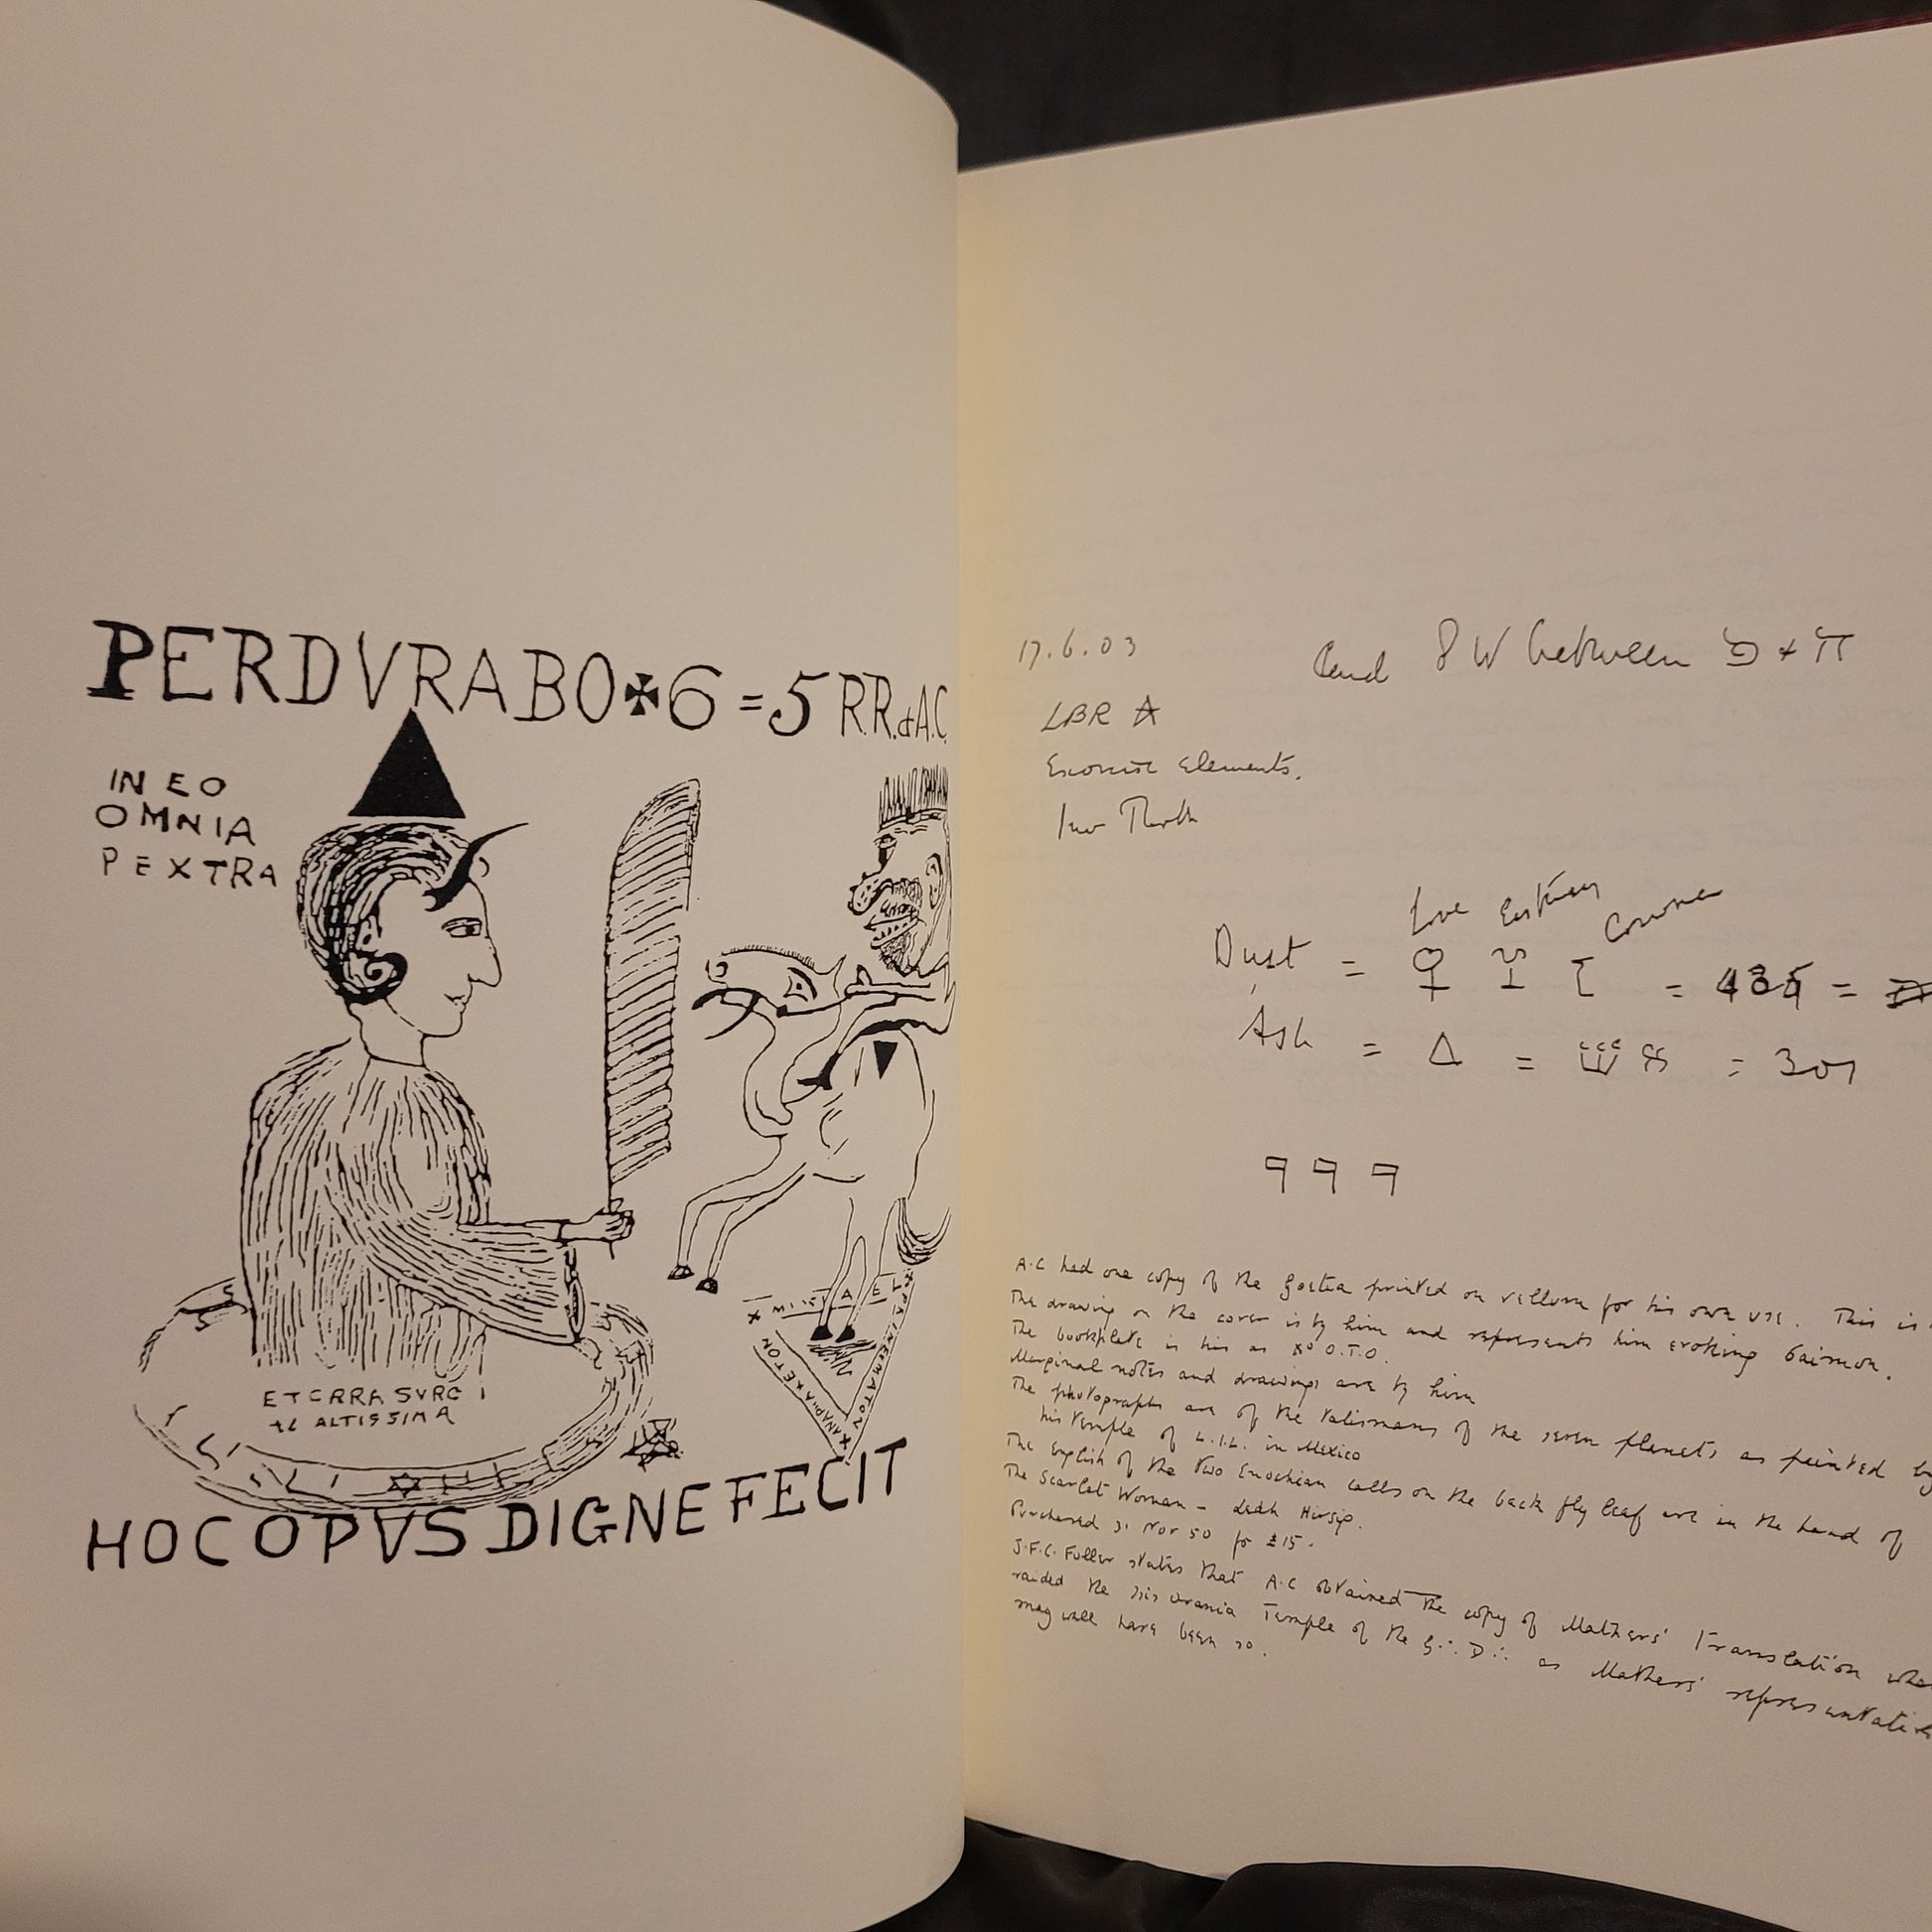 PERDVRABO ✠ 6 = 5 R.R. et A.C.
IN EO
OMNIA
PEXTRA
MICHAEL
ANAPHAXETON
ETCRRA SVRG
ALTISSIMA
HOC OPVS DIGNE FECIT
17.6.03
and 8 W between ט + π
LBR ☆
Exorcise Elements.
Inv Thoth
Love Coroner
Dust = ♀ = 434 =
Ash = △ = = 301
9 9 9
A.C had one copy of the Goetia printed on vellum for his own use. This is
The drawing on the cover is by him and represents him evoking Paimon.
The bookplate is his as X° O.T.O.
Marginal notes and drawings are by him
The photographs are of the talismans of the seven planets as painted by
his temple of L.I.L. in Mexico
The English of the two Enochian calls on the back fly leaf are in the hand of
The Scarlet Woman - Leah Hirsig.
Purchased Nov 50 for £15.
J.F.C. Fuller states that A.C obtained the copy of Mathers' Translation when
raided the Isis Urania Temple of the G∴D∴ as Mathers' representative
may well have been so.